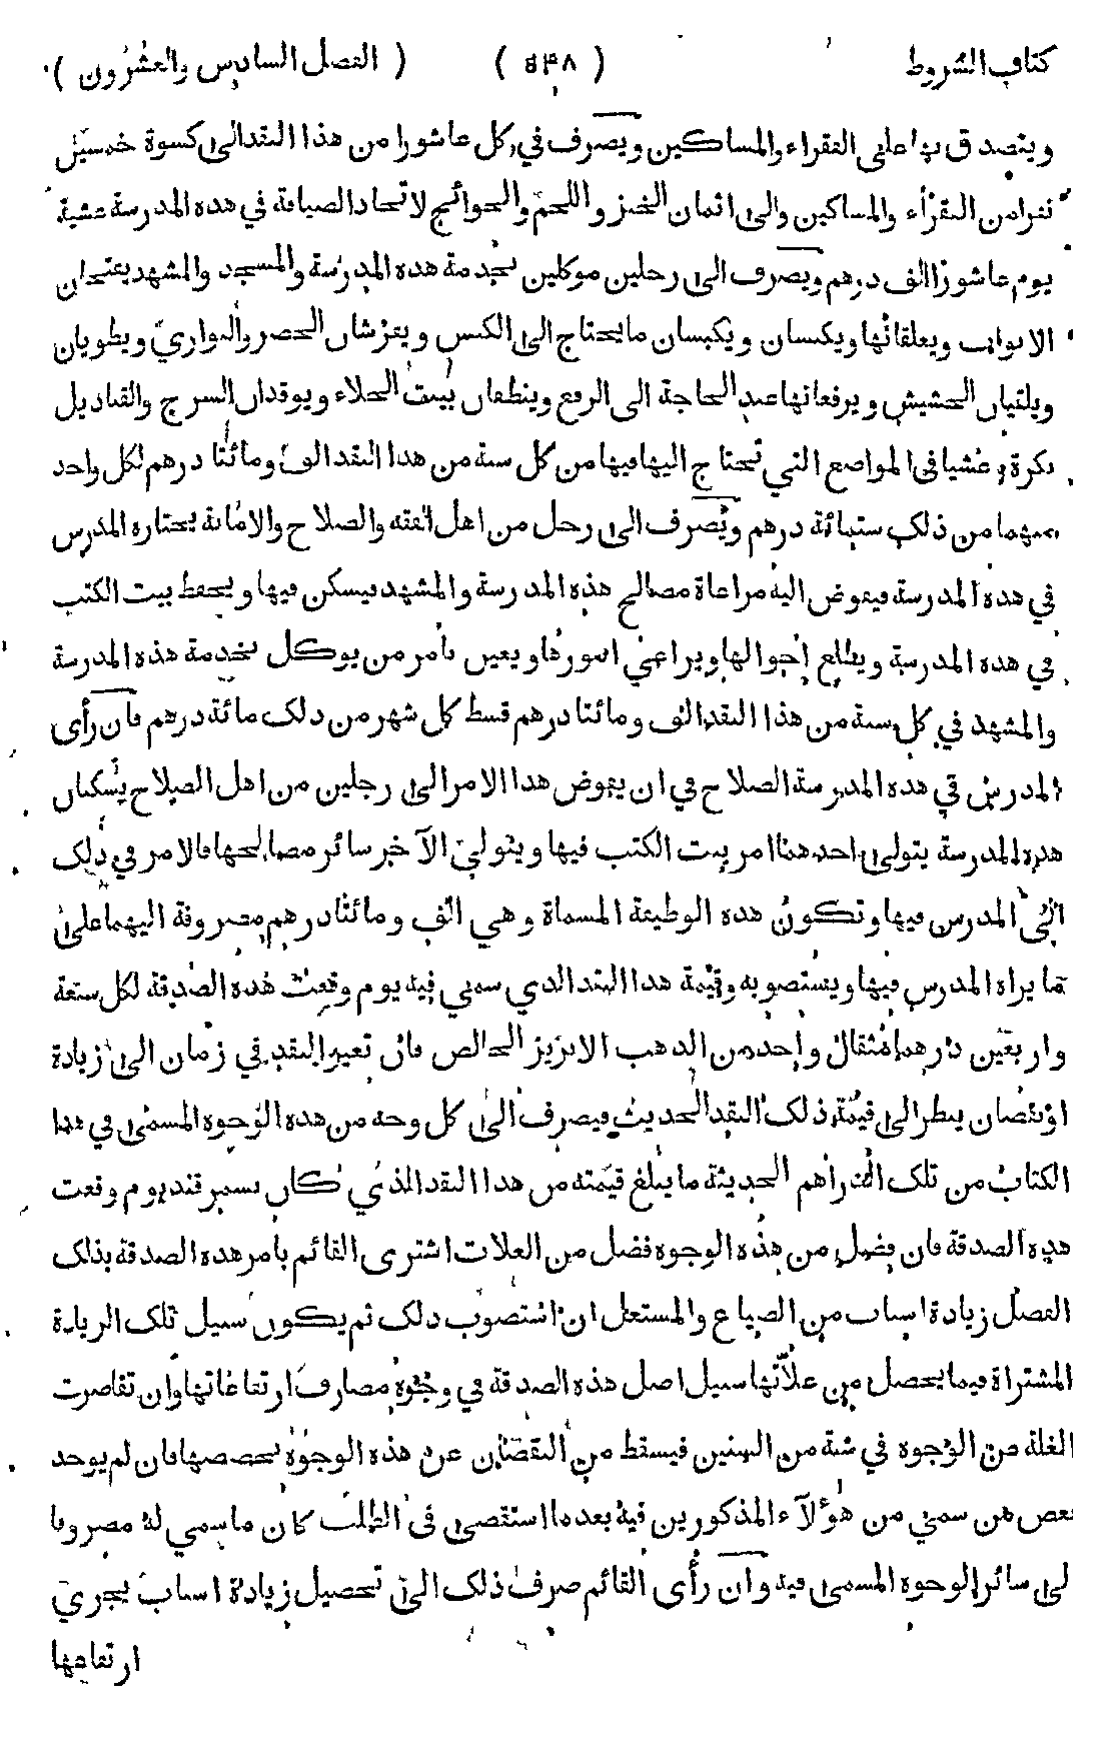 كتاب الشروط ( ٥٣٨ ) ( الفصل السادس والعشرون )
ويتصدق بها على الفقراء والمساكين ويصرف في كل عاشورا من هذا النقد الى كسوة خمسين
نفرا من الفقراء والمساكين والى اثمان الخبز واللحم والحوائج لاتخاذ الضيافة في هذه المدرسة عشية
يوم عاشورا الف درهم ويصرف الى رجلين موكلين بخدمة هذه المدرسة والمسجد والمشهد يفتحان
الابواب ويغلقانها ويكنسان ويكبسان ما يحتاج الى الكبس ويفرشان الحصر والبواري ويطويان
ويلقيان الحشيش ويرفعانها عند الحاجة الى الرفع وينظفان بيت الخلاء ويوقدان السرج والقناديل
بكرة وعشيا في المواضع التي تحتاج اليها فيها من كل سنة من هذا النقد الف ومائتا درهم لكل واحد
منهما من ذلك ستمائة درهم ويصرف الى رجل من اهل الفقه والصلاح والامانة يختاره المدرس
في هذه المدرسة فيفوض اليه مراعاة مصالح هذه المدرسة والمشهد فيسكن فيها ويحفظ بيت الكتب
في هذه المدرسة ويطلع احوالها ويراعي امورها ويعين بامر من يوكل بخدمة هذه المدرسة
والمشهد في كل سنة من هذا النقد الف ومائتا درهم قسط كل شهر من ذلك مائة درهم فان رأى
المدرس في هذه المدرسة الصلاح في ان يفوض هذا الامر الى رجلين من اهل الصلاح يسكنان
هذه المدرسة يتولى احدهما امر بيت الكتب فيها ويتولى الآخر سائر مصالحها فالامر في ذلك
الى المدرس فيها وتكون هذه الوظيفة المسماة وهي الف ومائتا درهم مصروفة اليهما على
ما يراه المدرس فيها ويستصوبه وقيمة هذا النقد الذي سمي فيه يوم وقعت هذه الصدقة لكل سبعة
واربعين درهما مثقال واحد من الذهب الابريز الخالص فان تغير النقد في زمان الى زيادة
او نقصان ينظر الى قيمة ذلك النقد الحديث فيصرف الى كل وجه من هذه الوجوه المسمى في هذا
الكتاب من تلك الدراهم الحديثة ما يبلغ قيمته من هذا النقد الذي كان يوم وقعت
هذه الصدقة فان يفضل من هذه الوجوه فضل من الغلات اشترى القائم بامر هذه الصدقة بذلك
الفضل زيادة اسباب من الضياع والمستغل ان استصوب ذلك ثم يكون سبيل تلك الزيادة
المشتراة فيما يحصل من غلاتها سبيل اصل هذه الصدقة في وجوه مصارف ارتفاعاتها وان تقاصرت
الغلة من الوجوه في سنة من السنين فيسقط من النقصان عن هذه الوجوه بحصصها فان لم يوجد
بعض من سمي من هؤلآء المذكورين فيه بعد ما استقصى فى الطلب كان ما سمي له مصروفا
لى سائر الوجوه المسمى فيه وان رأى القائم صرف ذلك الى تحصيل زيادة اسباب يجري
ارتفاعها